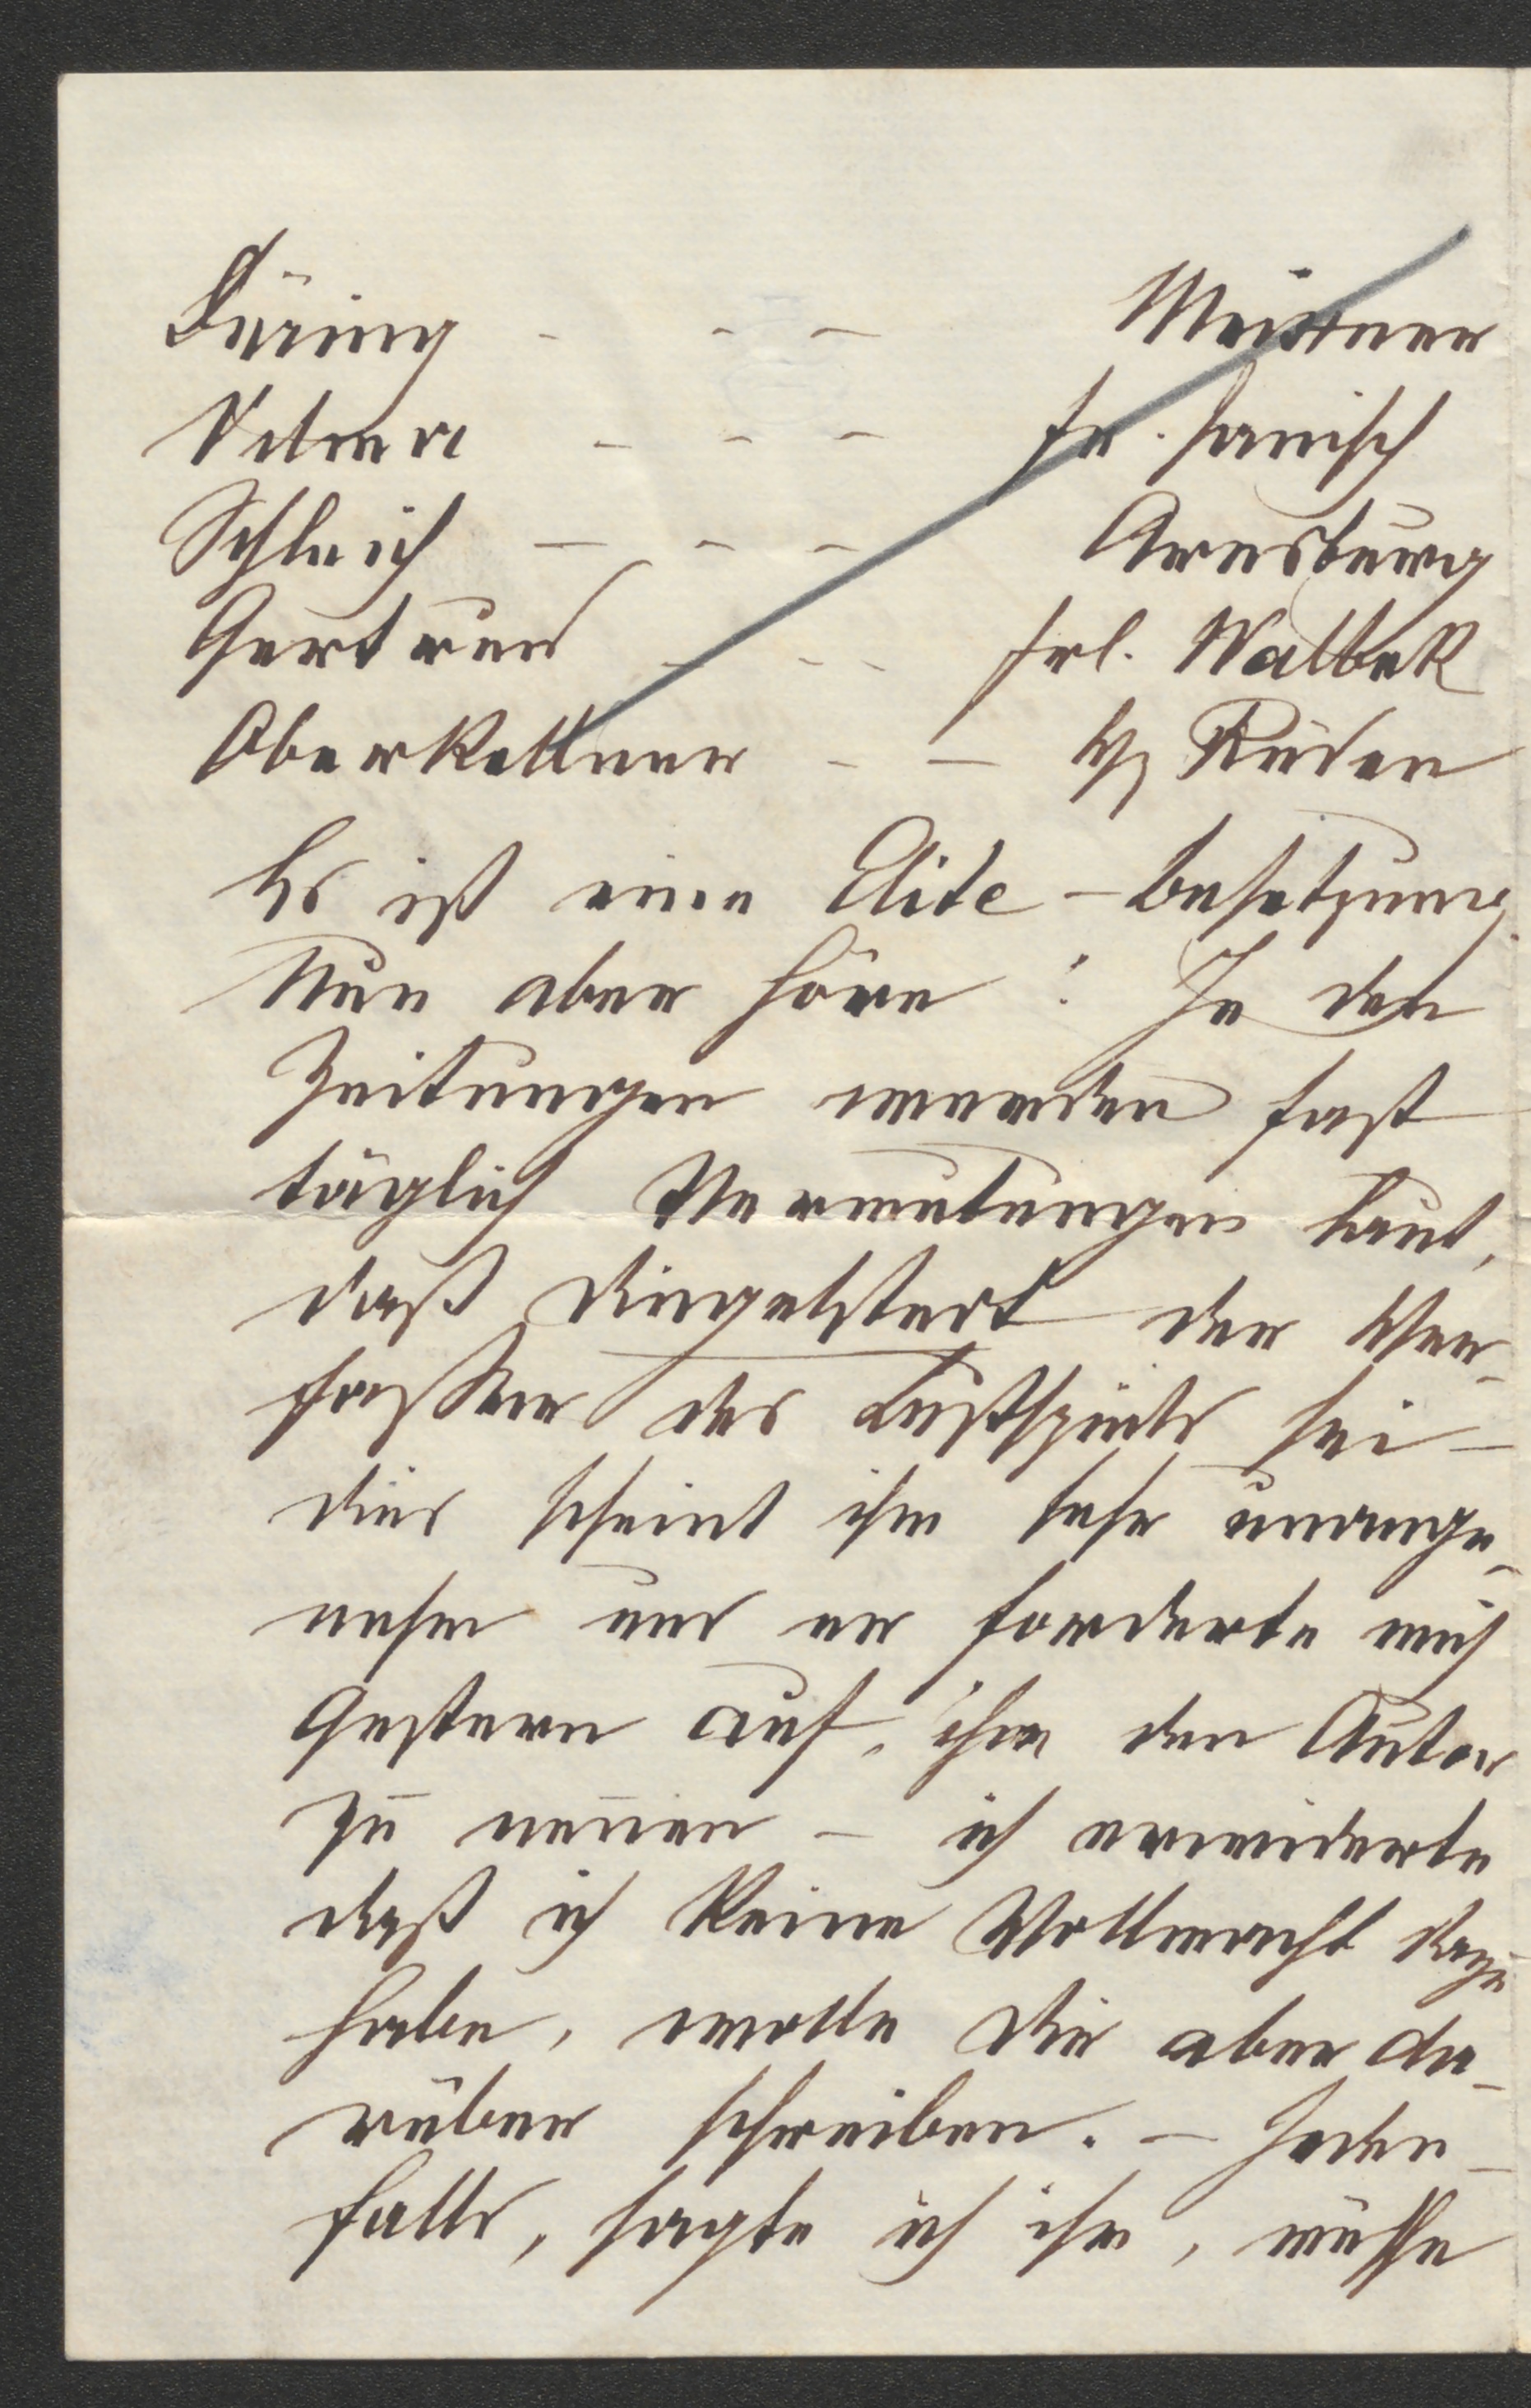 Düring - - - Meixner
Vilma - - - Fr. Janisch
Schleich - - - Arnsburg
Gertrud - - - Frl. Walbek
Oberkellner - - H Rüden
Es ist eine Elite-Besetzung.
Nun aber höre: In den
Zeitungen werden fast
täglich Vermutungen laut,
daß Dingelstedt der Ver-
fasser des Lustspiels sei -
dies scheint ihm sehr unange-
nehm und er forderte mich
gestern auf, ihm den Autor
zu nennen - ich erwiderte
daß ich keine Vollmacht dazu
habe, wolle Dir aber da-
rüber schreiben. - Jeden-
falls, sagte ich ihm, müsse